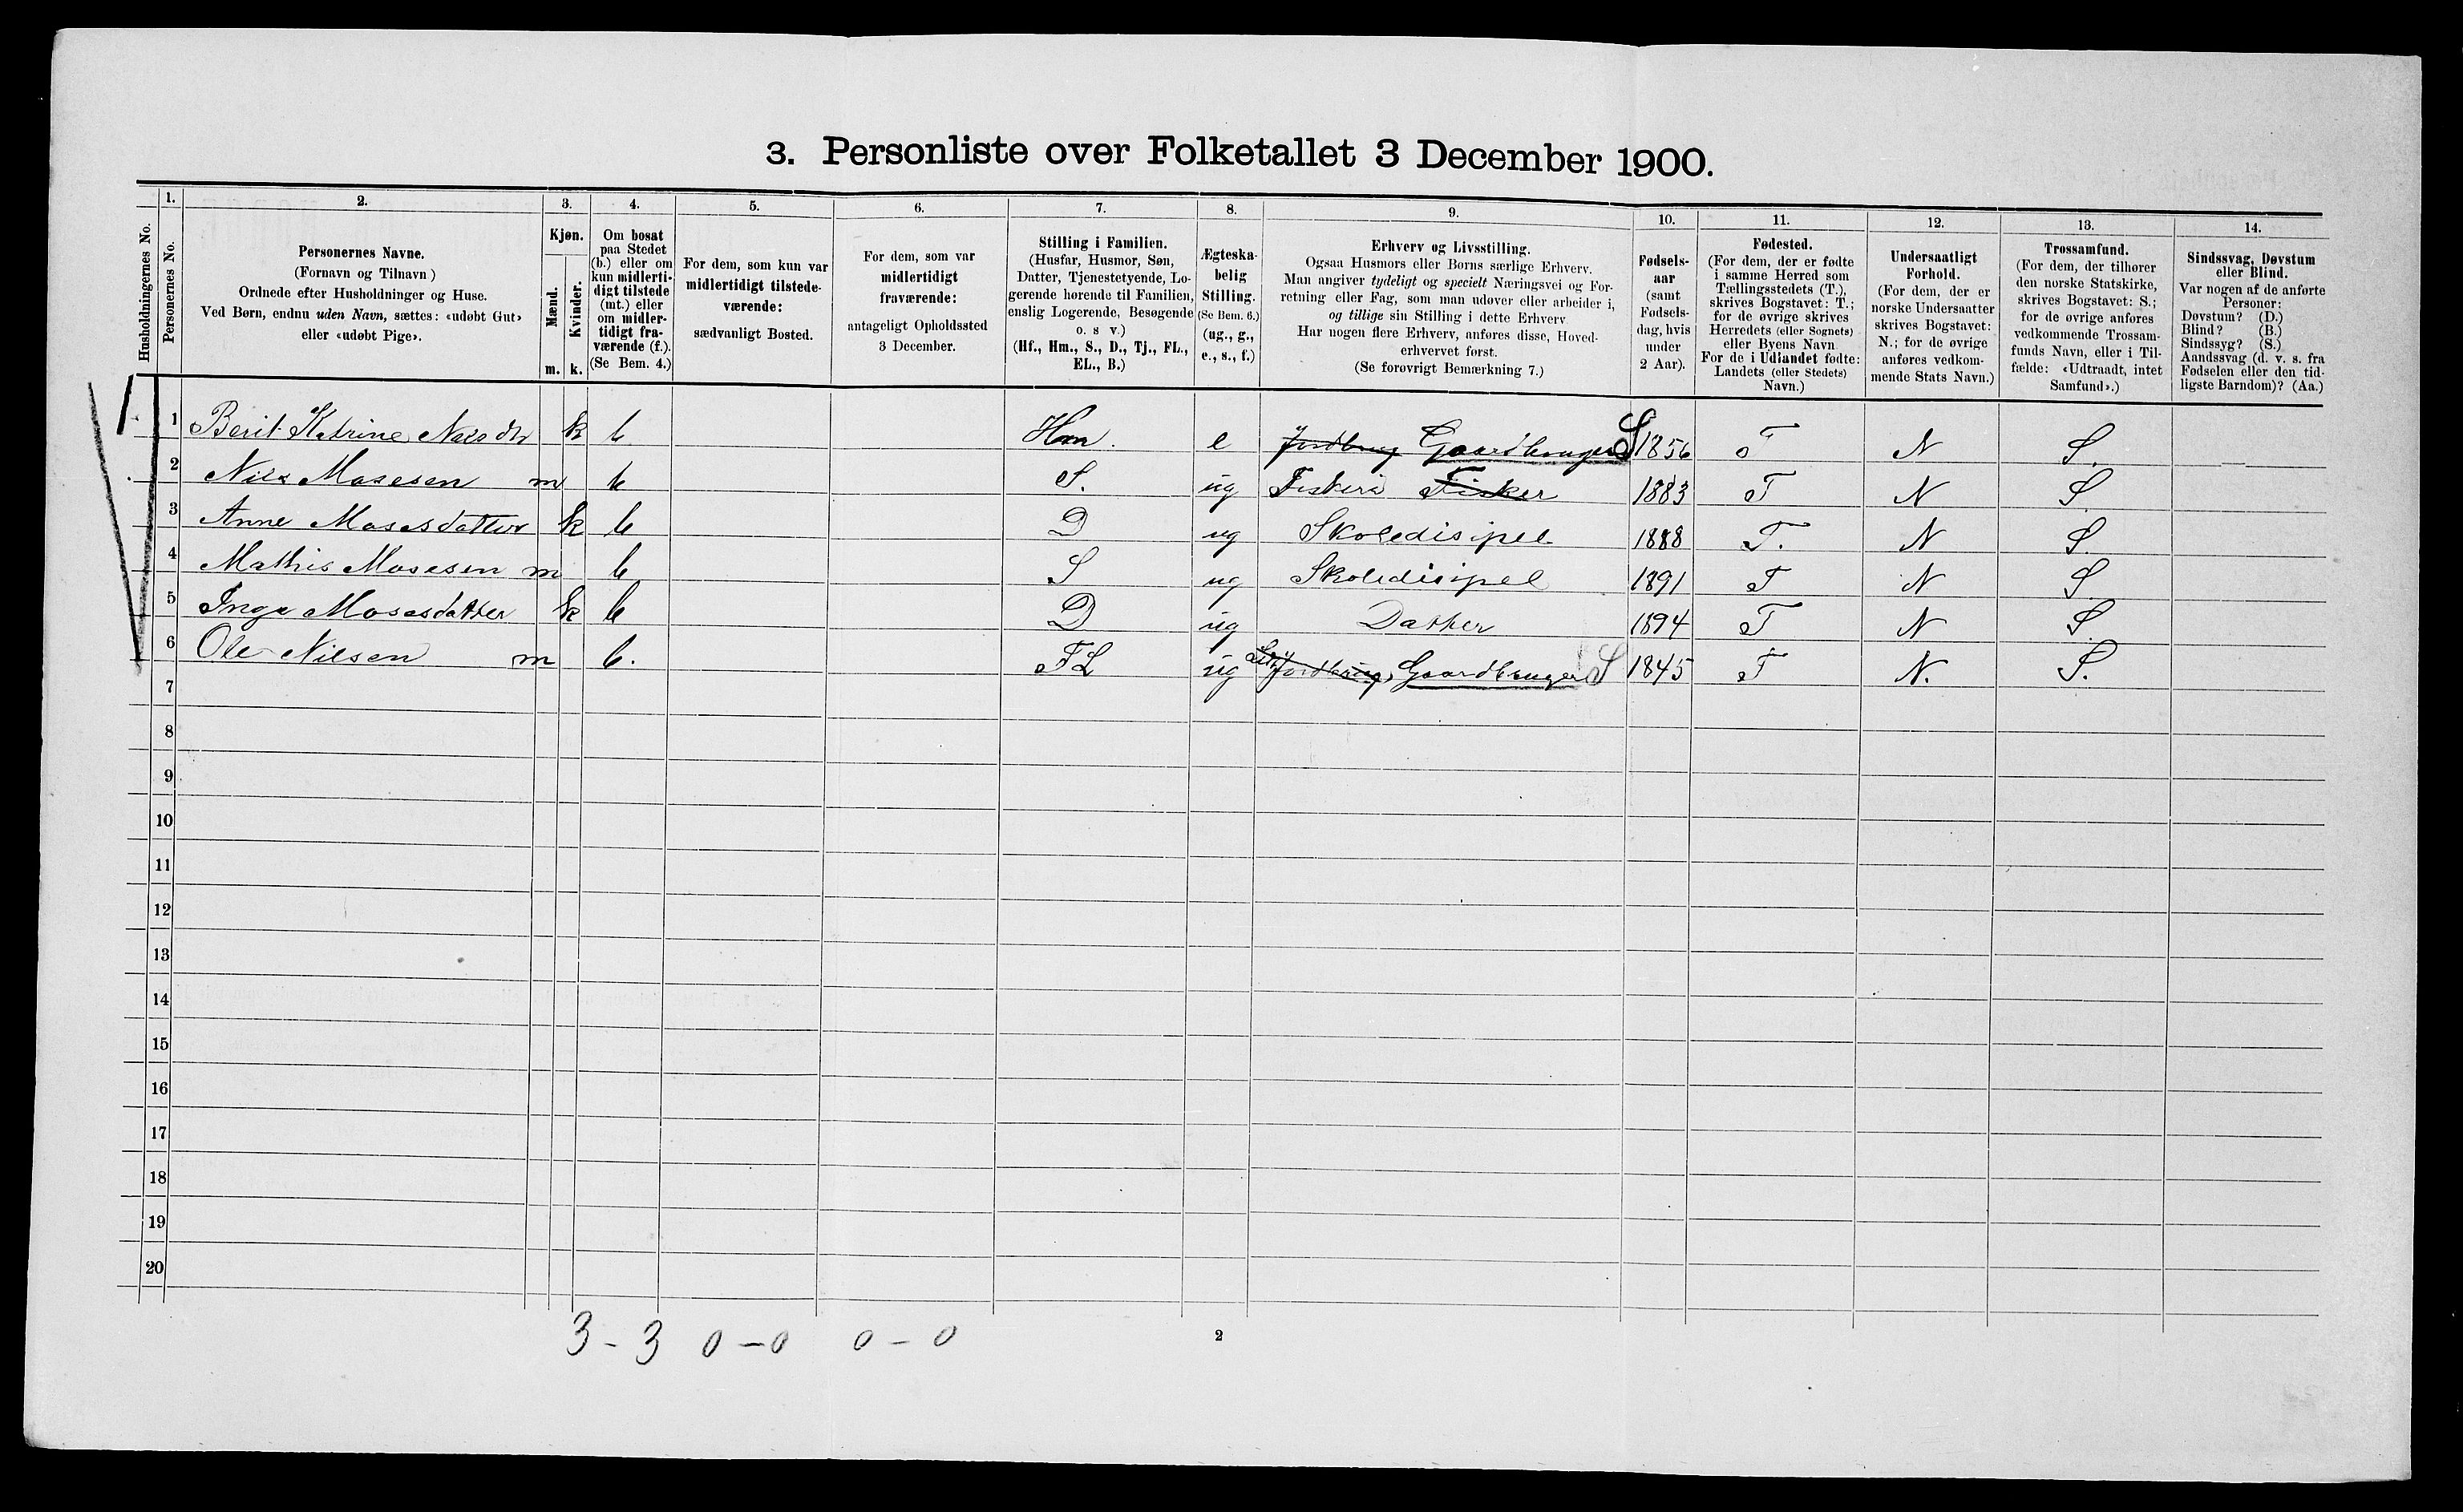 3. Personliste over Folketallet 3 December 1900.
Husholdningernes No.
1.
Personernes No.
2.
Personernes Navne.
(Fornavn og Tilnavn)
Ordnede efter Husholdninger og Huse.
Ved Børn, endnu uden Navn, sættes: «udøbt Gut»
eller «udøbt Pige».
3.
Kjøn.
Mænd.
Kvinder.
m. k.
4.
Om bosat
paa Stedet
(b.) eller om
kun midlerti-
digt tilstede
(mt.) eller
om midler-
tidigt fra-
værende (f.).
(Se Bem. 4.)
5.
For dem, som kun var
midlertidigt tilstede-
værende:
sædvanligt Bosted.
6.
For dem, som var
midlertidigt
fraværende:
antageligt Opholdssted
3 December.
7.
Stilling i Familien.
(Husfar, Husmor, Søn,
Datter, Tjenestetyende, Lo-
gerende hørende til Familien,
enslig Logerende, Besøgende
o. s v.)
(Hf., Hm., S., D., Tj., FL.,
EL., B.)
8.
Ægteska-
belig
Stilling.
(Se Bem. 6.)
(ug., g.,
e., s., f.)
9.
Erhverv og Livsstilling.
Ogsaa Husmors eller Børns særlige Erhverv.
Man angiver tydeligt og specielt Næringsvei og For-
retning eller Fag, som man udøver eller arbeider i,
og tillige sin Stilling i dette Erhverv
Har nogen flere Erhverv, anføres disse, Hoved-
erhvervet først.
(Se forøvrigt Bemærkning 7.)
10.
Fødsels-
aar
(samt
Fødsels-
dag, hvis
under
2 Aar).
11.
Fødested.
(For dem, der er fødte
i samme Herred som
Tællingsstedets (T.),
skrives Bogstavet: T.;
for de øvrige skrives
Herredets (eller Sognets)
eller Byens Navn
For de i Udlandet fødte:
Landets (eller Stedets)
Navn.)
12.
Undersaatligt
Forhold.
(For dem, der er
norske Undersaatter
skrives Bogstavet:
N.; for de øvrige
anføres vedkom-
mende Stats Navn.)
13.
Trossamfund.
(For dem, der tilhører
den norske Statskirke,
skrives Bogstavet: S.;
for de øvrige anføres
vedkommende Trossam-
funds Navn, eller i Til-
fælde: «Udtraadt, intet
Samfund».)
14.
Sindssvag, Døvstum
eller Blind.
Var nogen af de anførte
Personer:
Døvstum? (D.)
Blind? (B.)
Sindssyg? (S.)
Aandssvag (d. v. s. fra
Fødselen eller den tid-
ligste Barndom)? (Aa.)
1 Berit Katrine Nilsdtr k b Hm. e Jordbrug Gaardbruger S 1856 T N S.
2 Nils Mosesen m b S. ug Fiskeri Fisker 1883 T N S
3 Anne Mosesdatter k b D ug Skoledisipel 1888 T. N S.
4 Mathis Mosesen m b S ug Skoledisipel 1891 T N S
5 Inga Mosesdatter k b D ug Datter 1894 T N S
6 Ole Nilsen m b. FL ug Jordbrug, Gaardbruger S 1845 T N. S.
7
8
9
10
11
12
13
14
15
16
17
18
19
20
3 - 3 0 - 0 0 - 0
2